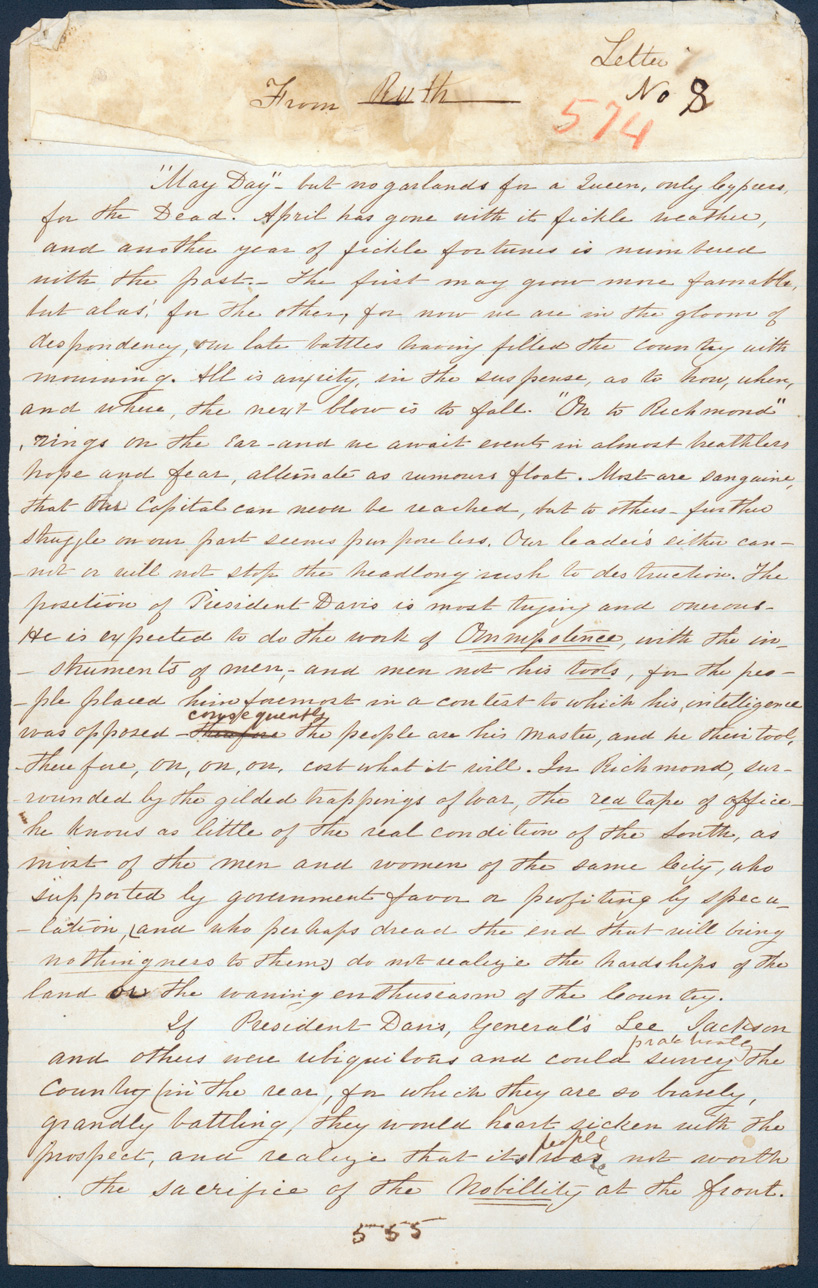 Letter
From Ruth No 8
574
"May Day" - but no garlands for a Queen, only Cypress,
for the Dead. April has gone with it fickle weather,
and another year of fickle fortunes is numbered
with the past - The first may grow more favorable,
but alas! for the other, for now we are in the gloom of
despondency, our late battles having filled the country with
mourning. All is anxiety, in the suspense, as to how, when,
and where, the next blow is to fall. "On to Richmond"
rings on the ear - and we await events in almost breathless
hope and fear, alternate as rumours float. Most are sanguine,
that our Capital can never be reached, but to others - further
struggle on our part seems purposeless. Our leader's either can-
-not or will not stop the headlong rush to destruction. The
position of President Davis is most trying and onerous -
He is expected to do the work of Omnipotence, with the in-
-struments of men, - and men not his tools, for the peo-
-ple placed him foremost in a contest to which his intelligence
consequently
was opposed - therefore the people are his master, and he their tool,
-therefore, on, on, on, cost what it will. In Richmond, sur-
-rounded by the gilded trappings of war, the red tape of office -
he knows as little of the real condition of the South, as
most of the men and women of the same City, who
supported by government favor or profiting by specu-
-lation, (and who perhaps dread the end that will bring
nothingness to them) do not realize the hardships of the
land or the waning enthusiasm of the Country.
If President Davis, General's Lee Jackson
and others were ubiquitous and could survey the
Country (in the rear, for which they are so bravely,
grandly battling) they would heart sicken with the
people
prospect, and realize that its were not worth
the sacrifice of the Nobillity at the front.
555